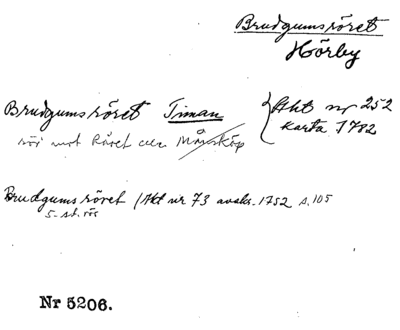 Brudgumsröret
Hörby
Brudgumsröret Timan { Akt nr 252
karta 1782
rös mot Råret Månsköp
Brudgumsröret (Akt nr 73 avskr. 1752 s. 105
5-st. rös
Nr 5206.